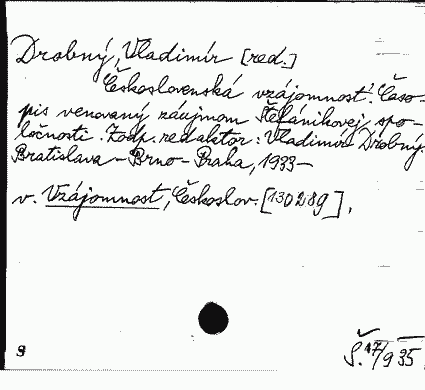 Drobný, Vladimír [red.]
Československá vzájomnosť. Časo-
pis venovaný záujmom Štefánikovej spo-
ločnosti. Zodp. redaktor: Vladimír Drobný.
Bratislava – Brno – Praha, 1933–
v. Vzájomnost, Českoslov. [130289],
9
Š. 17/9 35